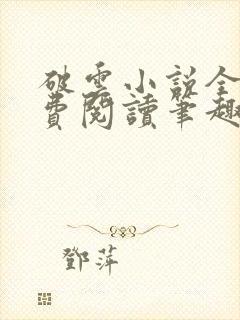 破雲小說全
費閱讀筆趣
鄧萍